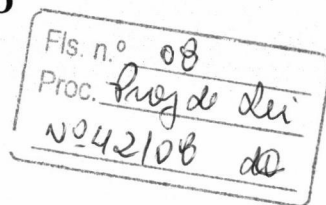 Fls. n.º 08
Proc. Proj de Lei
Nº 42/08